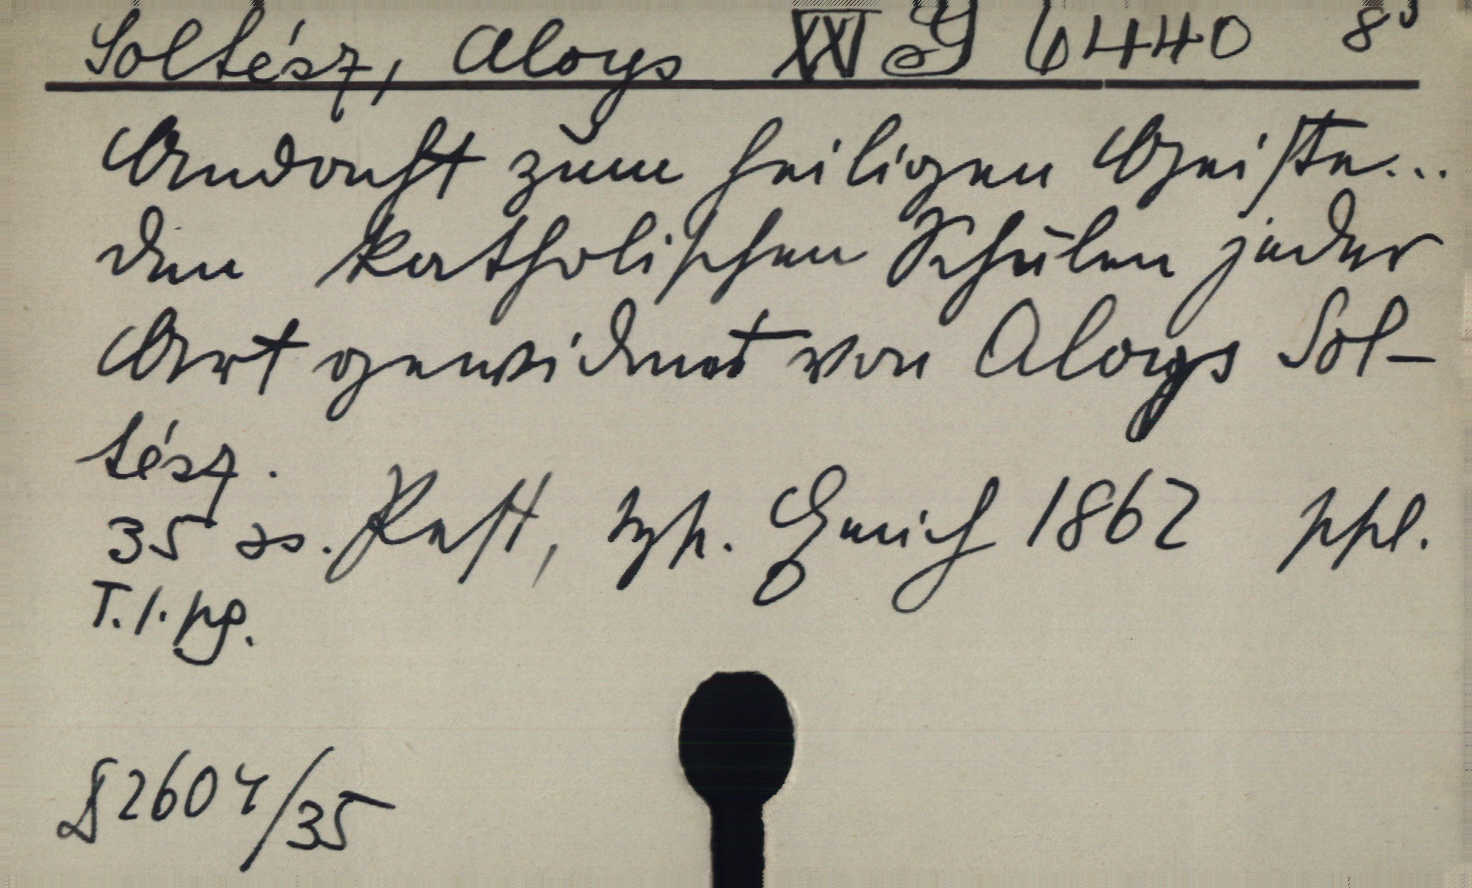 Soltész, Aloys XXI G 6440 8°
Andacht zum heiligen Geiste...
den katholischen Schulen jeder
Art gewidmet von Aloys Sol-
tész.
35 ss. Pest, typ. Emich 1862 ppl.
T. 1. pg.
2604/35